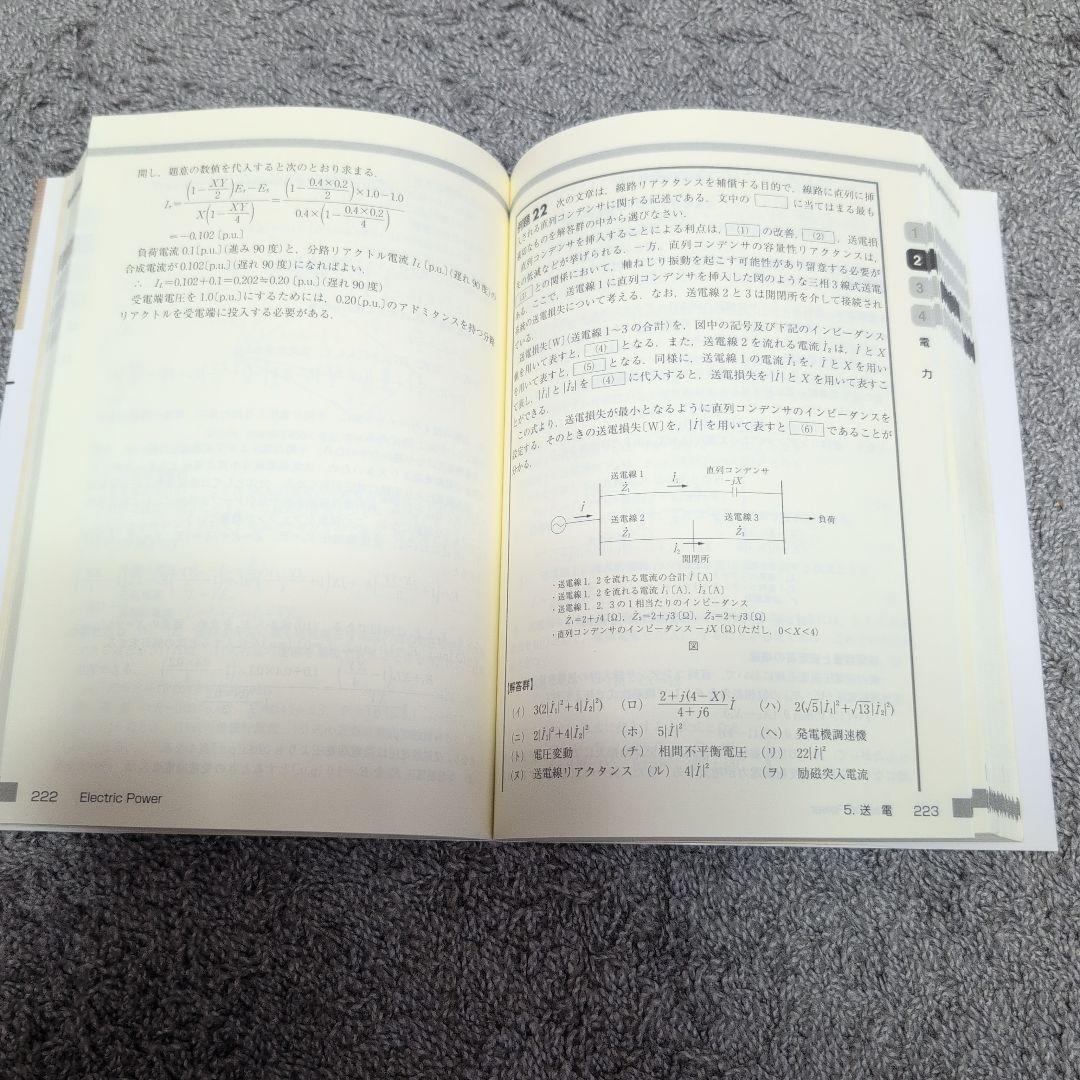 開し，題意の数値を代入すると次のとおり求まる．
Ir= (1−XY/2)Er−Es / X(1−XY/4) = (1−0.4×0.2/2)×1.0−1.0 / 0.4×(1−0.4×0.2/4)
=−0.102〔p.u.〕
負荷電流 0.1〔p.u.〕(進み 90 度)と，分路リアクトル電流 IL〔p.u.〕(遅れ 90 度)の
合成電流が 0.102〔p.u.〕(遅れ 90 度)になればよい．
∴ IL=0.102+0.1=0.202≒0.20〔p.u.〕(遅れ 90 度)
受電端電圧を 1.0〔p.u.〕にするためには，0.20〔p.u.〕のアドミタンスを持つ分路
リアクトルを受電端に投入する必要がある．
222 Electric Power
例題 22 次の文章は，線路リアクタンスを補償する目的で，線路に直列に挿
される直列コンデンサに関する記述である．文中の に当てはまる最も
適切なものを解答群の中から選びなさい．
直列コンデンサを挿入することによる利点は，(1)の改善，(2)，送電損
失の軽減などが挙げられる．一方，直列コンデンサの容量性リアクタンスは，
(3)との関係において，軸ねじり振動を起こす可能性があり留意する必要が
ある．ここで，送電線 1 に直列コンデンサを挿入した図のような三相 3 線式送電
系統の送電損失について考える．なお，送電線 2 と 3 は開閉所を介して接続され
ている．
送電損失〔W〕(送電線 1〜3 の合計)を，図中の記号及び下記のインピーダンス
値を用いて表すと，(4)となる．また，送電線 2 を流れる電流 İ₂ は，İ と X
を用いて表すと，(5)となる．同様に，送電線 1 の電流 İ₁ を，İ と X を用い
て表し，|İ₁|と|İ₂|を(4)に代入すると，送電損失を|İ|と X を用いて表すこ
とができる．
この式より，送電損失が最小となるように直列コンデンサのインピーダンスを
設定する．そのときの送電損失〔W〕を，|İ|を用いて表すと(6)であることが
分かる．
送電線 1 Ż₁ İ₁ 直列コンデンサ −jX
İ
送電線 2 Ż₂ 送電線 3 Ż₃ 負荷
İ₂
開閉所
・送電線 1，2 を流れる電流の合計 İ〔A〕
・送電線 1，2 を流れる電流 İ₁〔A〕，İ₂〔A〕
・送電線 1，2，3 の 1 相当たりのインピーダンス
Ż₁=2+j4〔Ω〕，Ż₂=2+j3〔Ω〕，Ż₃=2+j3〔Ω〕
・直列コンデンサのインピーダンス −jX〔Ω〕(ただし，0<X<4)
図
【解答群】
(イ) 3(2|İ₁|²+4|İ₂|²) (ロ) 2+j(4−X)/4+j6 İ (ハ) 2(√5|İ₁|²+√13|İ₂|²)
(ニ) 2|İ₁|²+4|İ₂|² (ホ) 5|İ|² (ヘ) 発電機調速機
(ト) 電圧変動 (チ) 相間不平衡電圧 (リ) 22|İ|²
(ヌ) 送電線リアクタンス (ル) 4|İ|² (ヲ) 励磁突入電流
5. 送 電 223
1
2
3
4
電
力